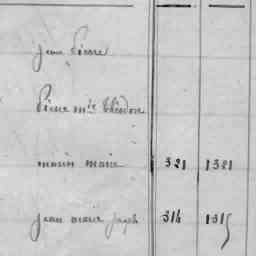 jean Pierre
Pierre mie théodore
marin marie 321 1321
jean marie joseph 314 1315